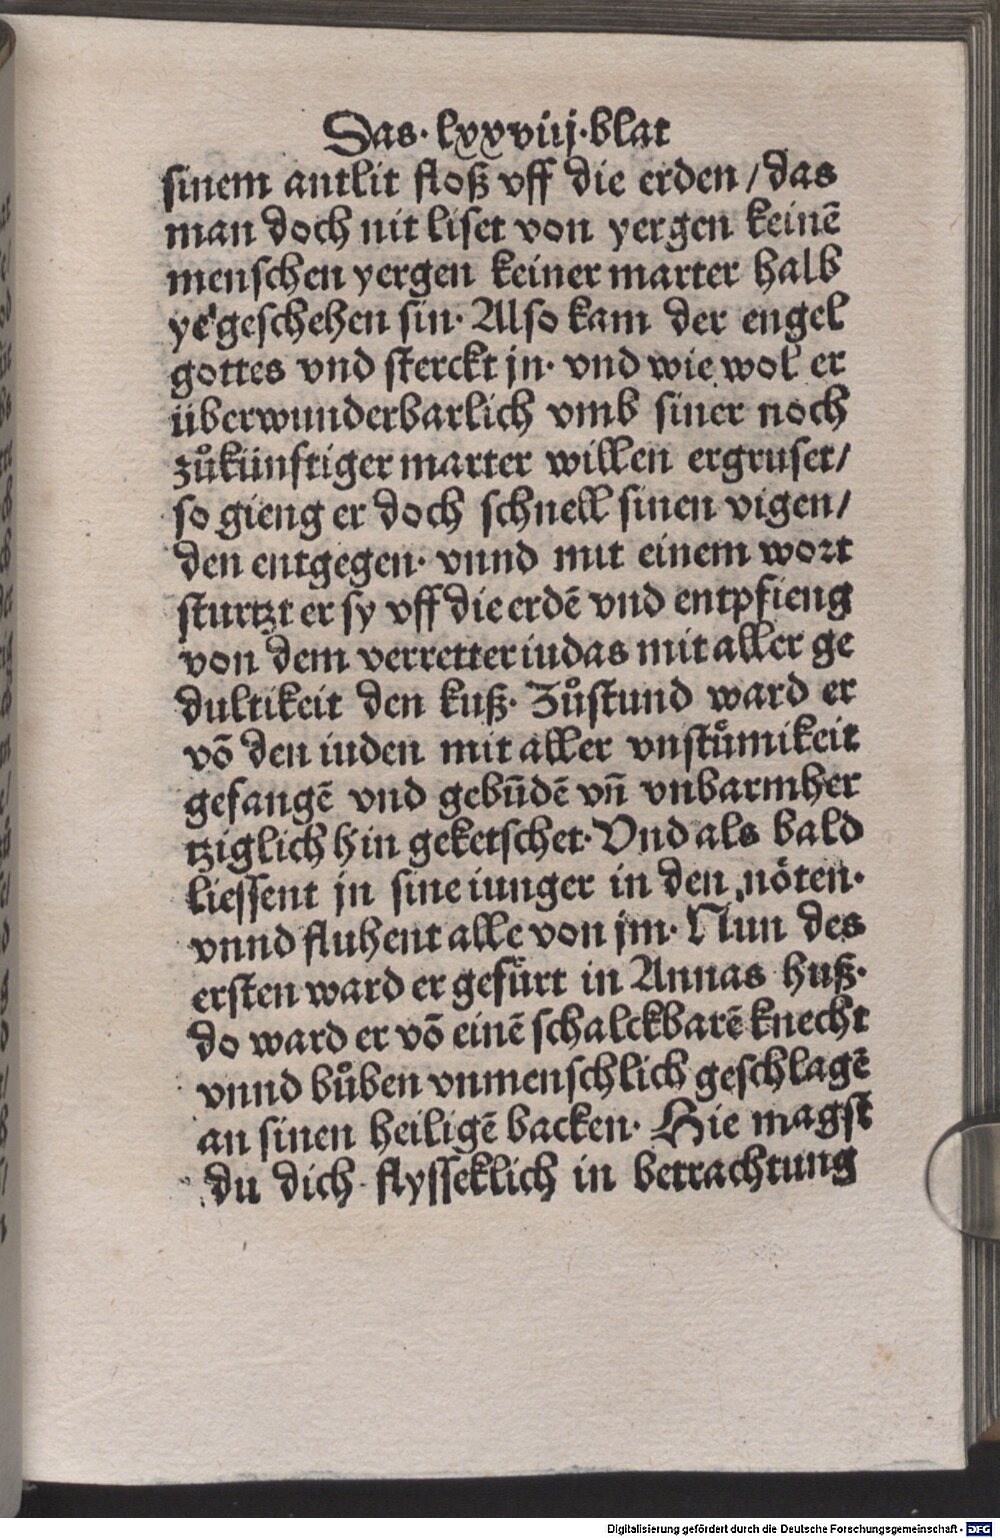 Das· lxxviij·blat
sinem antlit floß vff die erden / das
man doch nit liset von yergen keinē
menschen yergen keiner marter halb
ye geschehen sin· Also kam der engel
gottes vnd sterckt jn· vnd wie wol er
überwunderbarlich vmb siner noch
zůkünftiger marter willen ergruset/
so gieng er doch schnell sinen vigen/
den entgegen· vnnd mit einem wort
sturtzt er sy vff die erdē vnd entpfieng
von dem verretter iudas mit aller ge
dultikeit den kuß· Zůstund ward er
vō den iuden mit aller vnstůmikeit
gefangē vnd gebūdē vn̄ vnbarmher
tziglich hin geketschet· Vnd als bald
liessent jn sine iunger in den nöten·
vnnd fluhent alle von jm· Nun des
ersten ward er gefürt in Annas huß·
do ward er vō einē schalckbarē knecht
vnnd bůben vnmenschlich geschlagē
an sinen heiligē backen· Hie magst
du dich flysseklich in betrachtung
Digitalisierung gefördert durch die Deutsche Forschungsgemeinschaft - DFG